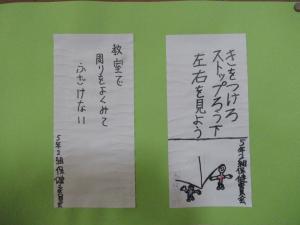 きをつけろ
ストップろう下
左右を見よう
5年2組保健委員会
教室で
周りをよくみて
ふざけない
5年2組保健委員会